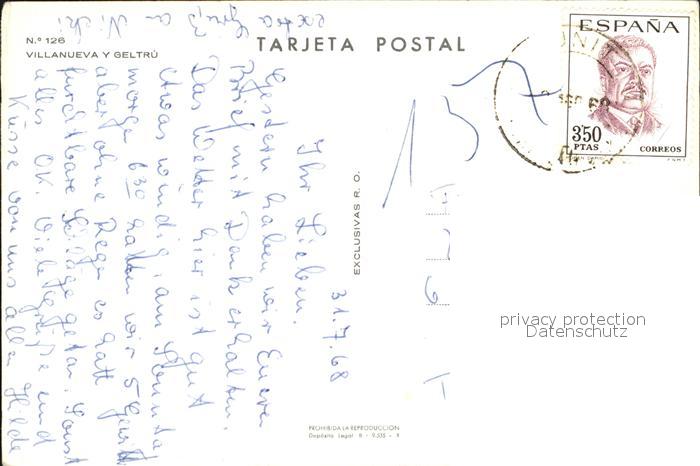 N.º 126
VILLANUEVA Y GELTRÚ
TARJETA POSTAL
ESPAÑA
350
PTAS
CORREOS
EXCLUSIVAS R. O.
PROHIBIDA LA REPRODUCCION
Depósito Legal B - 9.535 - X
privacy protection
Datenschutz
157
31.7.68
Ihr Lieben.
Gestern haben wir Euren
Brief mit Dank erhalten.
Das Wetter hier ist gut
etwas windig, am Sonntag
morge 630 hatten wir 5
aber ohne Rege es hatt
furchtbare getan. Sonst
alles OK. Viele Grüße und
Küsse von uns allen Hilde
extra
Gruß
an